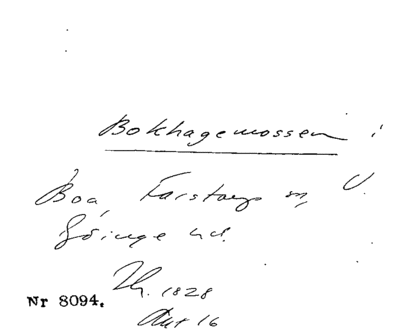 Bokhagemossen i
Boa, Farstorp sn, V.
Göinge hd.
Th. 1828
Akt 16
Nr 8094.